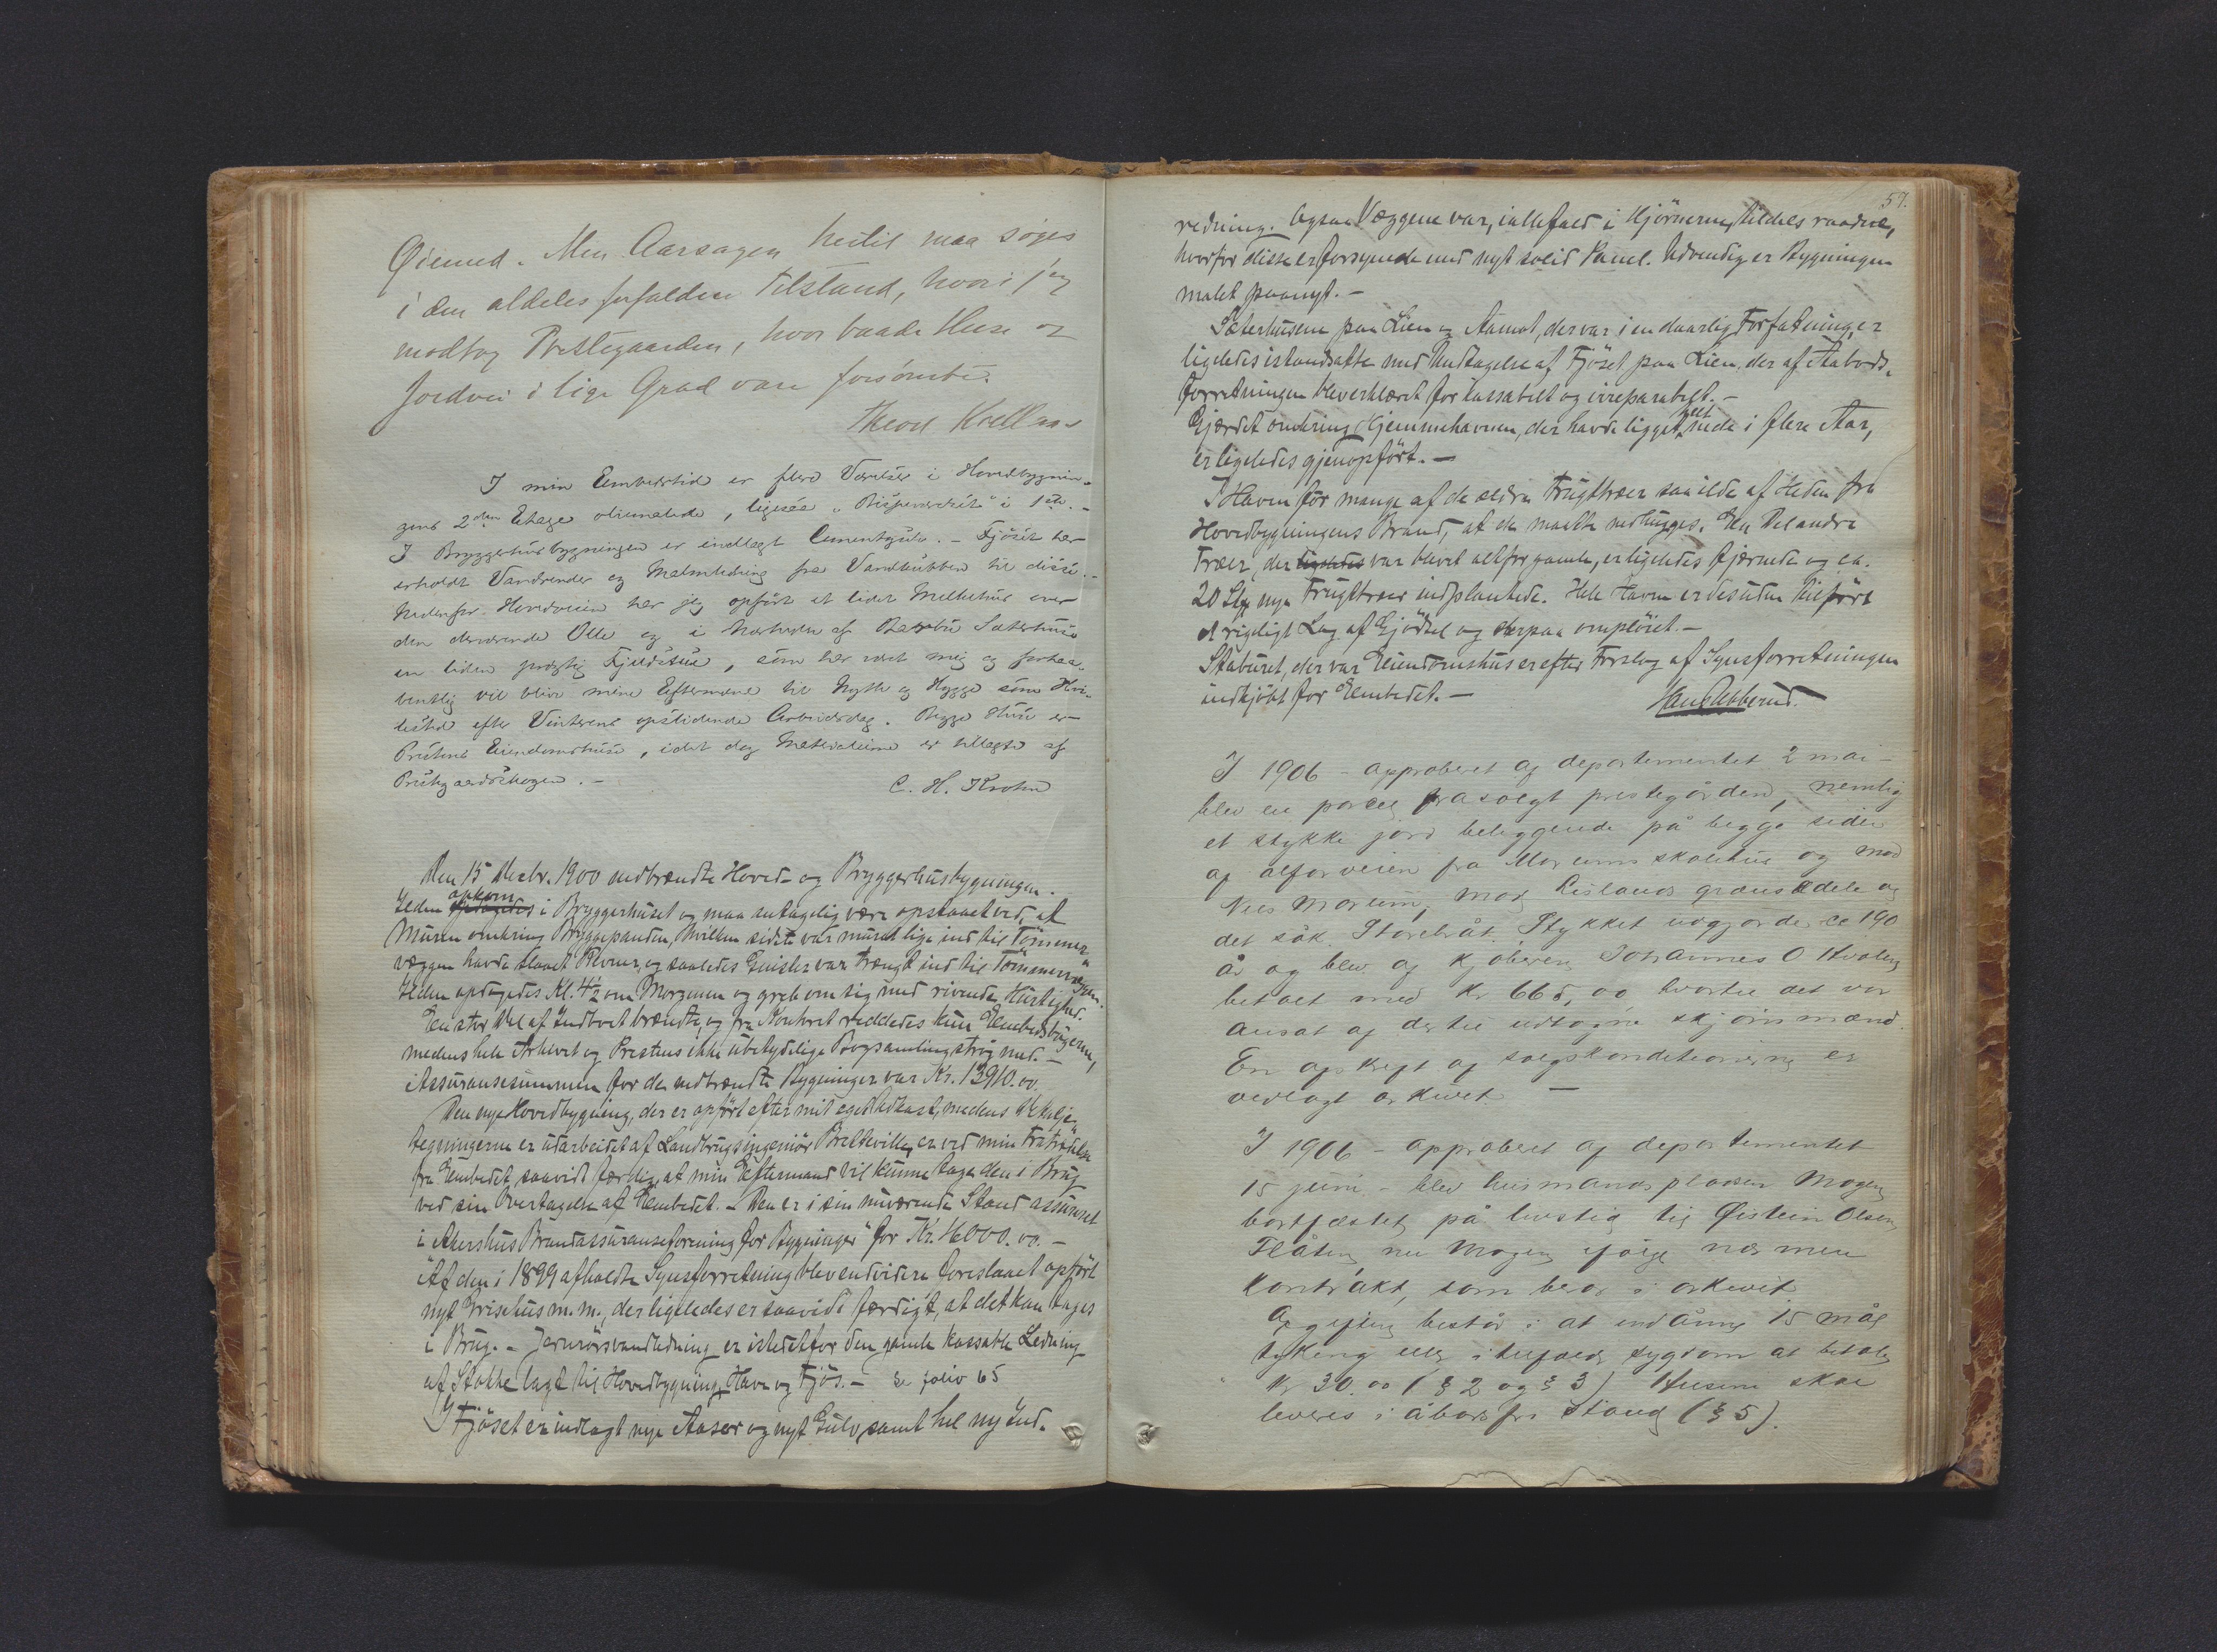 Øiemed. Men Aarsagen hertil maa søges
i den aldeles forfaldne Tilstand, hvori jeg
modtog Prestegaarden, hvor baade Huse og
Jordvei i lige Grad vare forsömte.
Theod
I min Embedstid er flere Værelser i Hovedbygnin-
gens 2den Etage oliemalede, ligesaa "Bispeværelset" i 1ste.-
I Bryggerhusbygningen er indlagt Cementgulv. - Fjöset har
erholdt Vandrender og Malmledning fra Vandkubben til disse.-
Nedenfor Hovedveien har jeg opfört et lidet Melkehus over
den derværende Olle og i Nærheden af Sæterhuse
en liden prægtig Fjeldstue, som har været mig og forhaa-
bentlig vil blive mine Eftermænd til Nytte og Hygge som Hvi-
lested efter Vinterens opslidende Arbeidsdag. Begge Huse er
Prestens Eiendomshuse, idet dog Materialerne er tillagte af
Prestegaardsskogen.-
C. H. Krohn
Den 15 Decbr. 1900 nedbrændte Hoved- og Bryggerhusbygningen.
Ilden opkom i Bryggerhuset og maa antagelig være opstaaet ved, at
Muren omkring Bryggepanden, hvilken sidste var muret lige ind til Tömmer-
væggen havde slaaet Revner, og saaledes Gnister var trængt ind til Tömmervæggen.
Ilden opdagedes Kl. 4½ om Morgenen og greb om sig med rivende Hurtighed.
En stor Del af Indboet brændte, og fra Kontoret reddedes kun Embedsbögerne,
medens hele Arkivet og Prestens ikke ubetydelige Bogsamling strög med.-
Assurансesummen for de nedbrændte Bygninger var Kr. 13910.00.
Den nye Hovedbygning, der er opfört efter mit eget Udkast, medens Detalje-
tegningerne er udarbeidet af Landbrugsingeniör er ved min Fratrædelse
fra Embedet saavidt færdig, at min Eftermand vil kunne tage den i Brug
ved sin Overtagelse af Embedet. - Den er i sin nuværende Stand assureret
i "Akershus Brandassuranseforening for Bygninger" for Kr. 16000.00.-
Af den i 1899 afholdte Synsforretning blev endvidere foreslaaet opfört
nyt Grisehus m.m., der ligeledes er saavidt færdigt, at det kan tages
i Brug. - Jernrörsvandledning er istedetfor den gamle kassable Ledning
af Stokke lagt til Hovedbygning, Have og Fjös.- Se folio 65
I Fjöset er indlagt nye Aaser og nyt Gulv, samt hel ny Ind-
57.
redning. Ogsaa Væggene var, ialfald i Hjörnerne, tildels raadne,
hvorfor disse er forsynede med nyt solid Panel. Udvendig er Bygningen
malet paanyt.-
Sæterhusene paa Lien og Aamot, der var i en daarlig Forfatning, er
ligeledes istandsatte med Undtagelse af Fjöset paa Lien, der af Aabods-
forretningen blev erklæret for kassabelt og irreparabelt.-
Gjærdet omkring Hjemmehavnen, der havde ligget helt nede i flere Aar,
er ligeledes gjenopfört.-
I Haven for mange af de ældre Frugttræer saa ilde af Heden fra
Hovedbygningens Brand, at de maatte nedhugges. En Del andre
Træer, der ligeledes var blevet altfor gamle, er ligeledes fjærnede og ca.
20 Stkr nye Frugttræer indplantede. Hele Haven er desuden tilfört
et rigeligt Lag af Gjödsel og derpaa omplöiet.-
Staburet, der var Eiendomshus er efter Forslag af Synsforretningen
indkjöbt for Embedet.-
Hans Abberud.
I 1906 - approberet af departementet 2 mai -
blev en parcel frasolgt prestegården, nemlig
et stykke jord beliggende på begge sider
af alfarveien fra Morlums skolehus og mod
Nils Morlum, mod Rislands grænsedele og
det såk. Storebråt. Stykket udgjorde ca 190
år og blev af kjöberen Johannes O
betalt med Kr. 665,00 hvortil det var
ansat af dertil udtagne skjönsmænd.
En afskrift af salgskonditionerne er
vedlagt arkivet. -
I 1906 - approberet af departementet
15 juni - blev husmandspladsen Mogen
bortfæstet på livstid til Øistein Olsen
Flåten, nu Mogen ifölge nærmere
kontrakt, som beror i arkivet
Afgiften består i at indånne 15 mål
eller i tilfælde sygdom at betale
Kr 30.00 (§ 2 og § 3) Husene skal
leveres i åbodsfri stand (§ 5).